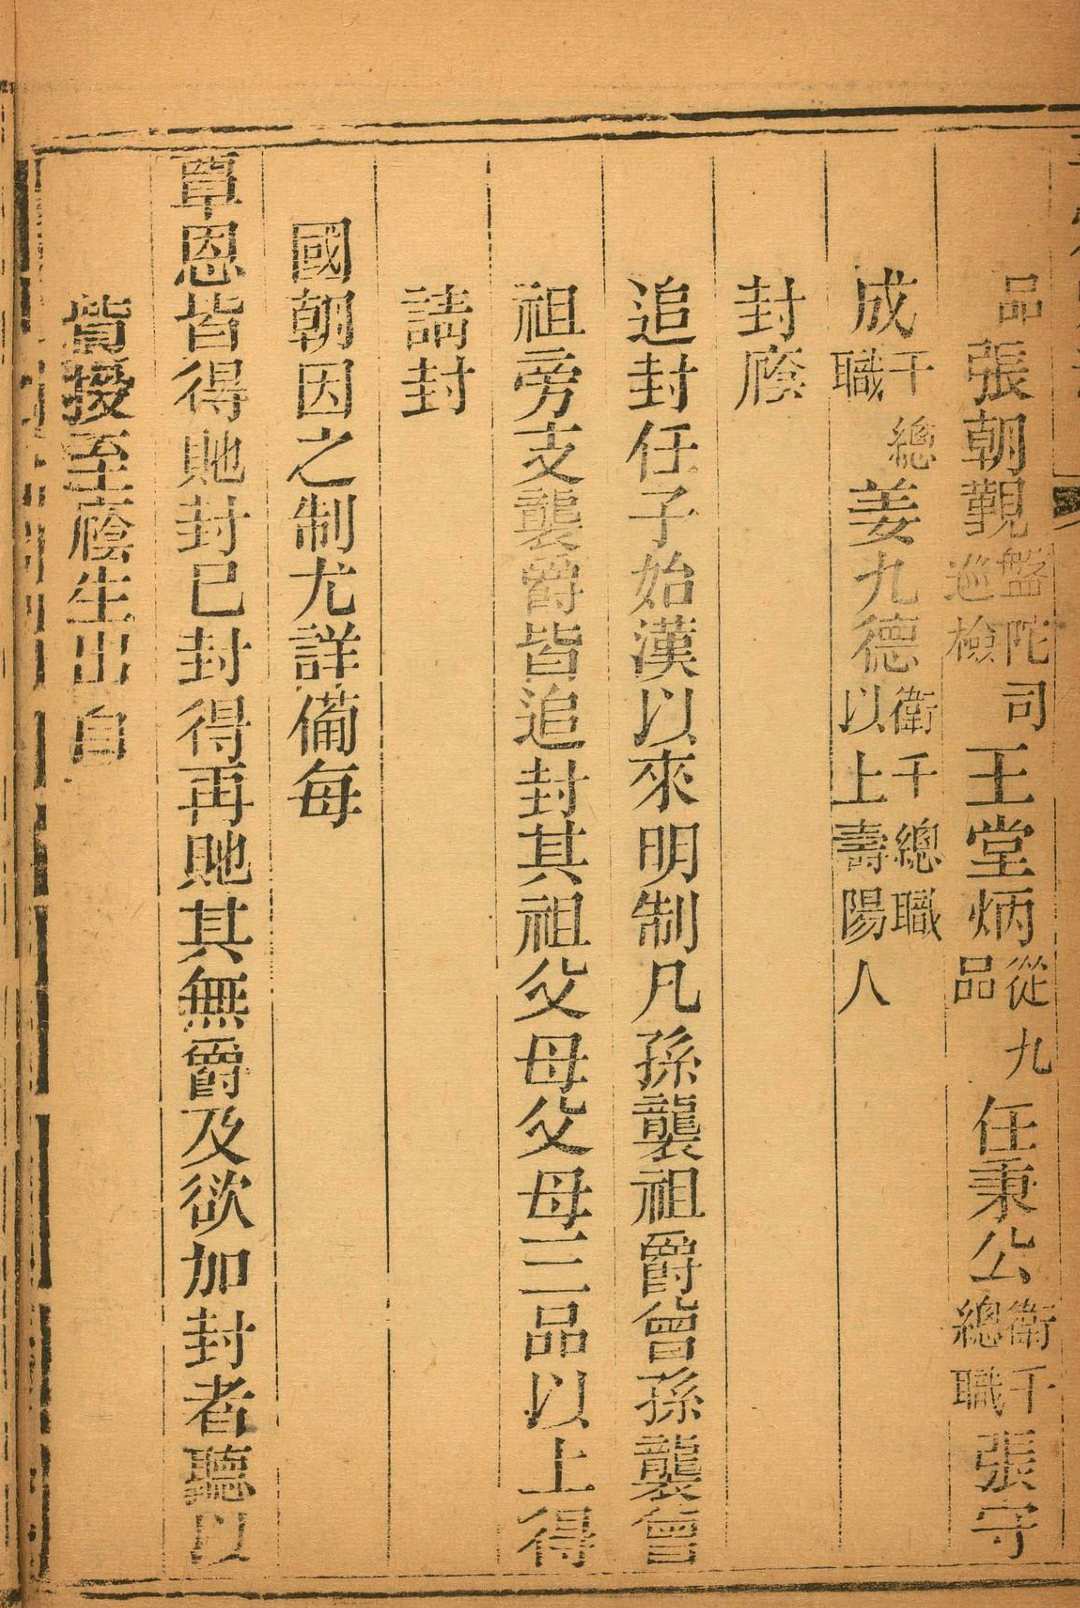 品張朝覲盤陀司巡檢王堂炳從九品任秉公衛千總職張守
成千總職姜九德衛千總職以上壽陽人
封廕
追封任子始漢以來明制凡孫襲祖爵曾孫襲曾
祖旁支襲爵皆追封其祖父母父母三品以上得
請封
國朝因之制尤詳備每
覃恩皆得貤封已封得再貤其無爵及欲加封者聽以
貲授至廕生出自